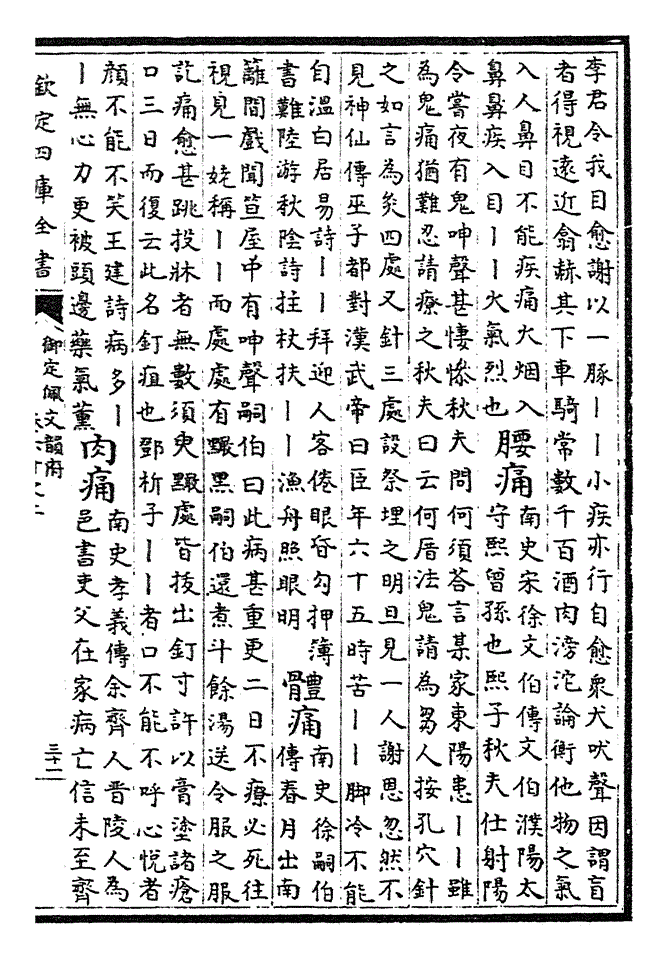 李君令我目愈謝以一豚丨丨小疾亦行自愈衆犬吠聲因謂盲
者得視遠近翕赫其下車騎常數千百酒肉滂沱論衡他物之氣
入人鼻目不能疾痛火烟入
鼻鼻疾入目丨丨火氣烈也
腰痛
南史宋徐文伯傳文伯濮陽太
守熙曾孫也熙子秋夫仕射陽
令嘗夜有鬼呻聲甚悽慘秋夫問何須荅言某家東陽患丨丨雖
為鬼痛猶難忍請療之秋夫曰云何厝法鬼請為芻人按孔穴針
之如言為灸四處又針三處設祭埋之明旦見一人謝恩忽然不
見神仙傳巫子都對漢武帝曰臣年六十五時苦丨丨脚冷不能
自溫白居易詩丨丨拜迎人客倦眼昏勾押簿
書難陸游秋陰詩拄杖扶丨丨漁舟照眼明
體痛
南史徐嗣伯
傳春月出南
籬間戲聞笪屋中有呻聲嗣伯曰此病甚重更二日不療必死往
視見一姥稱丨丨而處處有黶黑嗣伯還煮斗餘湯送令服之服
訖痛愈甚跳投牀者無數須臾黶處皆拔出釘寸許以膏塗諸瘡
口三日而復云此名釘疽也鄧析子丨丨者口不能不呼心悅者
顔不能不笑王建詩病多丨
丨無心力更被頭邊藥氣薰
肉痛
南史孝義傳余齊人晋陵人為
邑書吏父在家病亡信未至齊
欽定四庫全書
御定佩文韻府
三十二